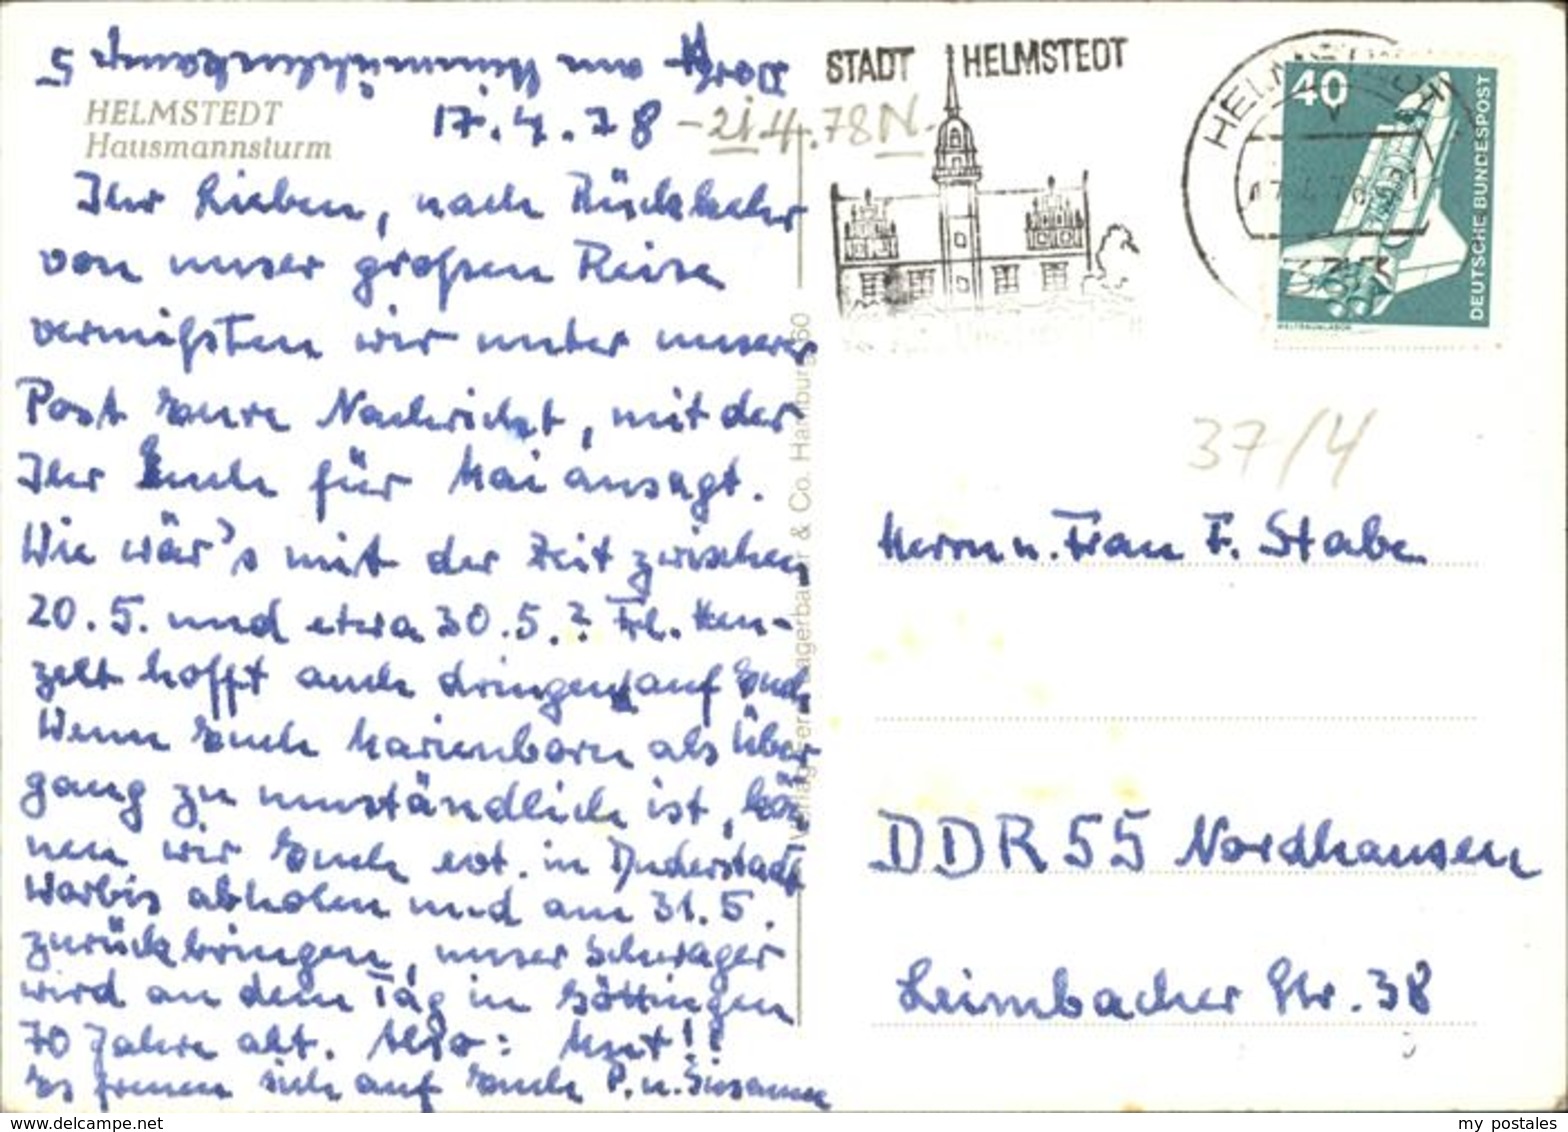 HELMSTEDT
Hausmannsturm
17.4.78 - 21.4.78 N.
Ihr Lieben, nach Rückkehr
von unser großen Reise
vermißten wir unter unserer
Post Eure Nachricht, mit der
Ihr Euch für Mai ansagt.
Wie wär's mit der Zeit zwischen
20.5. und etwa 30.5.? Frl. Hen-
zelt hofft auch dringend auf Euch
Wenn Euch Marienborn als Über-
gang zu umständlich ist, kön
nen wir Euch evt. in Duderstadt
Worbis abholen und am 31.5.
zurückbringen, unser Schwager
wird an dem Tag in Göttingen
70 Jahre alt. Also: Mut!!
Es freuen sich auf Euch P. u. Susanne
Verlag Ferd. Lagerbauer & Co. Hamburg 60
STADT HELMSTEDT
HELMSTEDT
40
DEUTSCHE BUNDESPOST
WELTRAUMLABOR
37/4
Herrn u. Frau F. Stabe
DDR 55 Nordhausen
Leimbacher Str. 38
www.delcampe.net
my_postales